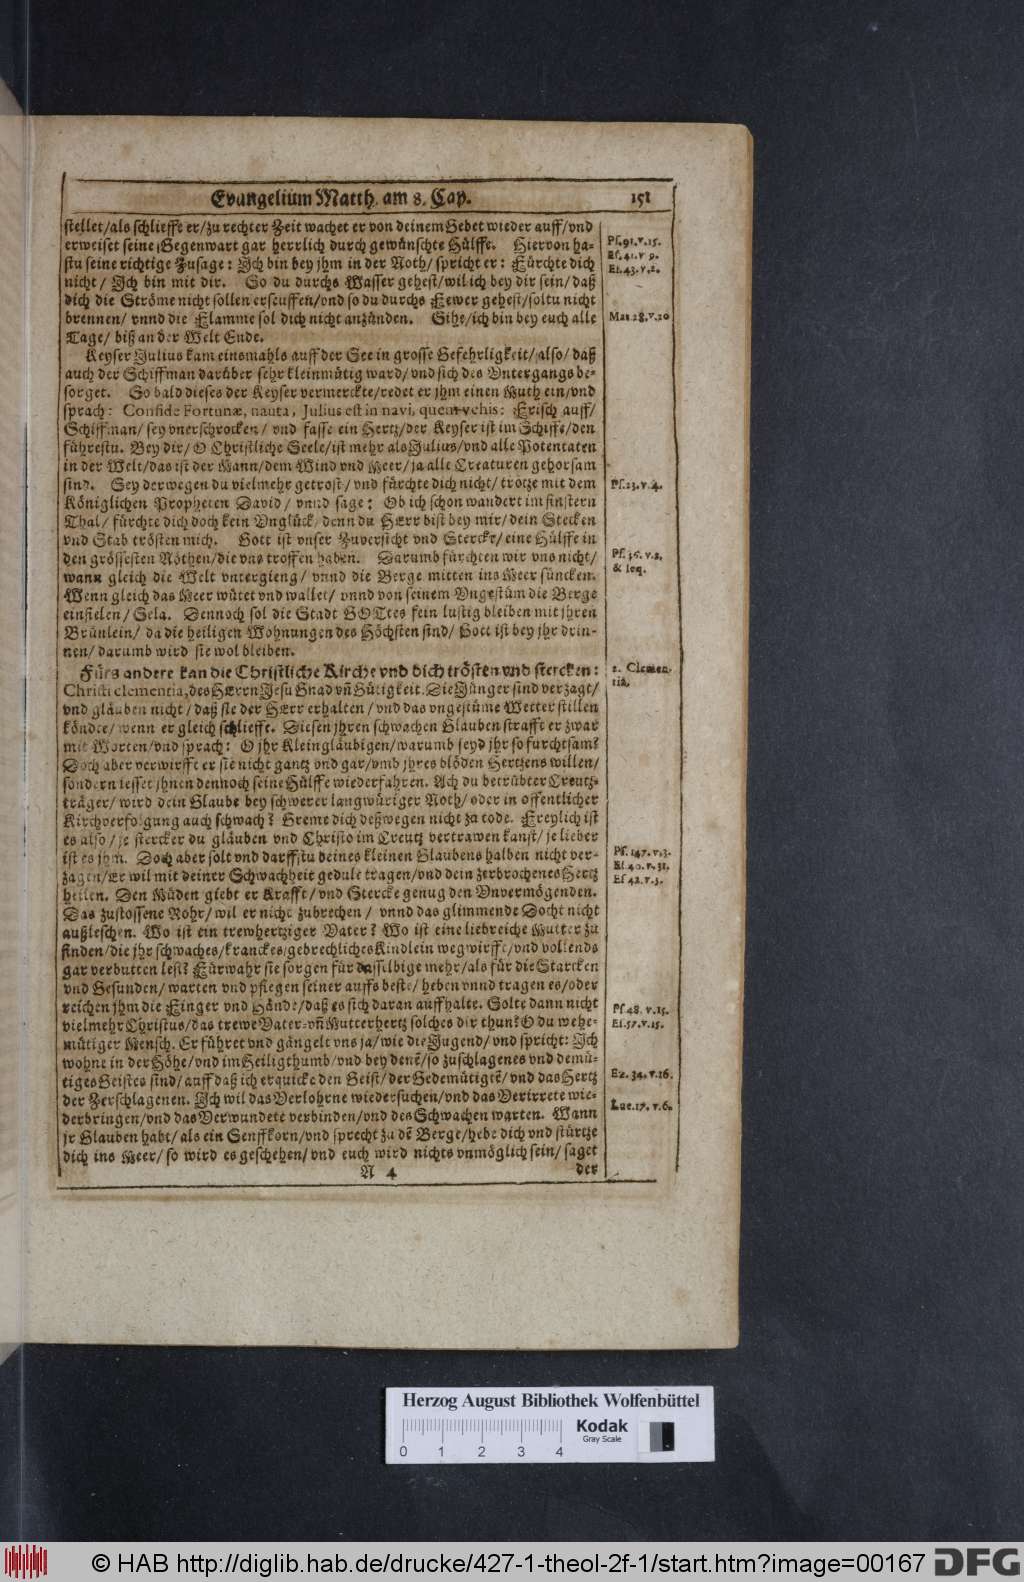 Evangelium Matth. am 8. Cap. 151
stellet/als schlieffe er/zu rechter Zeit wachet er von deinem Gebet wieder auff/vnd
erweiset seine Gegenwart gar herrlich durch gewünschte Hülffe. Hiervon ha-
stu seine richtige Zusage: Ich bin bey jhm in der Noth/ spricht er: Fürchte dich
nicht/ Ich bin mit dir. So du durchs Wasser gehest/wil ich bey dir sein/ daß
dich die Ströme nicht sollen erseuffen/vnd so du durchs Fewer gehest/soltu nicht
brennen/ vnnd die Flamme sol dich nicht anzünden. Sihe/ich bin bey euch alle
Tage/ biß an der Welt Ende.
Keyser Julius kam einsmahls auff der See in grosse Gefehrligkeit/also/ daß
auch der Schiffman darüber sehr kleinmütig ward/ vnd sich des Vntergangs be-
sorget. So bald dieses der Keyser vermerckte/redet er jhm einen Muth ein/vnd
sprach: Confide Fortunæ, nauta, Julius est in navi, quem vehis: Frisch auff/
Schiffman/ sey vnerschrocken/ vnd fasse ein Hertz/der Keyser ist im Schiffe/den
führestu. Bey dir/ O Christliche Seele/ist mehr als Julius/vnd alle Potentaten
in der Welt/das ist der Mann/dem Wind vnd Meer/ja alle Creaturen gehorsam
sind. Sey derwegen du vielmehr getrost/ vnd fürchte dich nicht/ trotze mit dem
Königlichen Propheten David/ vnnd sage: Ob ich schon wandert im finstern
Thal/ fürchte dich doch kein Vnglück/ denn du HErr bist bey mir/ dein Stecken
vnd Stab trösten mich. Gott ist vnser Zuversicht vnd Stercke/ eine Hülffe in
den grössesten Nöthen/die vns troffen haben. Darumb fürchten wir vns nicht/
wann gleich die Welt vntergieng/ vnnd die Berge mitten ins Meer süncken.
Wenn gleich das Meer wütet vnd wallet/ vnnd von seinem Vngestüm die Berge
einfielen/ Sela. Dennoch sol die Stadt GOttes fein lustig bleiben mit jhren
Brünlein/ da die heiligen Wohnungen des Höchsten sind/ Gott ist bey jhr drin-
nen/ darumb wird sie wol bleiben.
Fürs andere kan die Christliche Kirche vnd dich trösten vnd stercken:
Christi clementia, des HErrn Jesu Gnad vñ Gütigkeit. Die Jünger sind verzagt/
vnd gläuben nicht/ daß sie der HErr erhalten/ vnd das vngestüme Wetter stillen
köndte/ wenn er gleich schlieffe. Diesen jhren schwachen Glauben strafft er zwar
mit Worten/vnd sprach: O jhr Kleingläubigen/warumb seyd jhr so furchtsam?
Doch aber verwirfft er sie nicht gantz vnd gar/vmb jhres blöden Hertzens willen/
sondern lesset jhnen dennoch seine Hülffe wiederfahren. Ach du betrübter Creutz-
träger/ wird dein Glaube bey schwerer langwüriger Noth/ oder in offentlicher
Kirchverfolgung auch schwach? Greme dich deßwegen nicht zu tode. Freylich ist
es also/ je stercker du gläuben vnd Christo im Creutz vertrawen kanst/ je lieber
ist es jhm. Doch aber solt vnd darffstu deines kleinen Glaubens halben nicht ver-
zagen/Er wil mit deiner Schwachheit gedult tragen/vnd dein zerbrochenes Hertz
heilen. Den Müden giebt er Krafft/ vnd Stercke genug den Vnvermögenden.
Das zustossene Rohr/ wil er nicht zubrechen/ vnnd das glimmende Docht nicht
außleschen. Wo ist ein trewhertziger Vater? Wo ist eine liebreiche Mutter zu
finden/die jhr schwaches/kranckes/gebrechliches Kindlein wegwirfft/vnd vollends
gar verbutten lest? Fürwahr sie sorgen für dasselbige mehr/als für die Starcken
vnd Gesunden/ warten vnd pflegen seiner auffs beste/ heben vnnd tragen es/oder
reichen jhm die Finger vnd Hände/daß es sich daran auffhalte. Solte dann nicht
vielmehr Christus/das trewe Vater-vñ Mutterhertz solches dir thun? O du wehe-
mütiger Mensch. Er führet vnd gängelt vns ja/wie die Jugend/ vnd spricht: Ich
wohne in der Höhe/ vnd im Heiligthumb/vnd bey denẽ/so zuschlagenes vnd demü-
tiges Geistes sind/ auff daß ich erquicke den Geist/der Gedemütigtẽ/ vnd das Hertz
der Zerschlagenen. Ich wil das Verlohrne wiedersuchen/ vnd das Verirrete wie-
derbringen/vnd das Verwundete verbinden/vnd des Schwachen warten. Wann
jr Glauben habt/ als ein Senffkorn/vnd sprecht zu dẽ Berge/hebe dich vnd stürtze
dich ins Meer/ so wird es geschehen/ vnd euch wird nichts vnmöglich sein/ saget
N 4 der
Ps. 91. v. 15.
Es. 41. v. 9.
Et. 43. v. 2.
Mat 28. v. 20
Ps. 23. v. 4.
Ps. 36. v. 2.
& seq.
2. Clemen-
tia.
Ps. 147. v. 3.
Es. 40. v. 31.
Es 42. v. 3.
Ps. 48. v. 15.
Es. 57. v. 15.
Ez. 34. v. 16.
Luc. 17. v. 6.
Herzog August Bibliothek Wolfenbüttel
Kodak
Gray Scale
0 1 2 3 4
© HAB http://diglib.hab.de/drucke/427-1-theol-2f-1/start.htm?image=00167
DFG